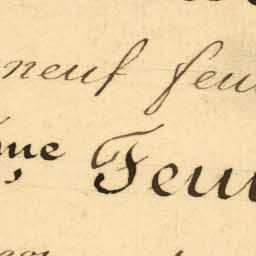 neuf feu
me Feu